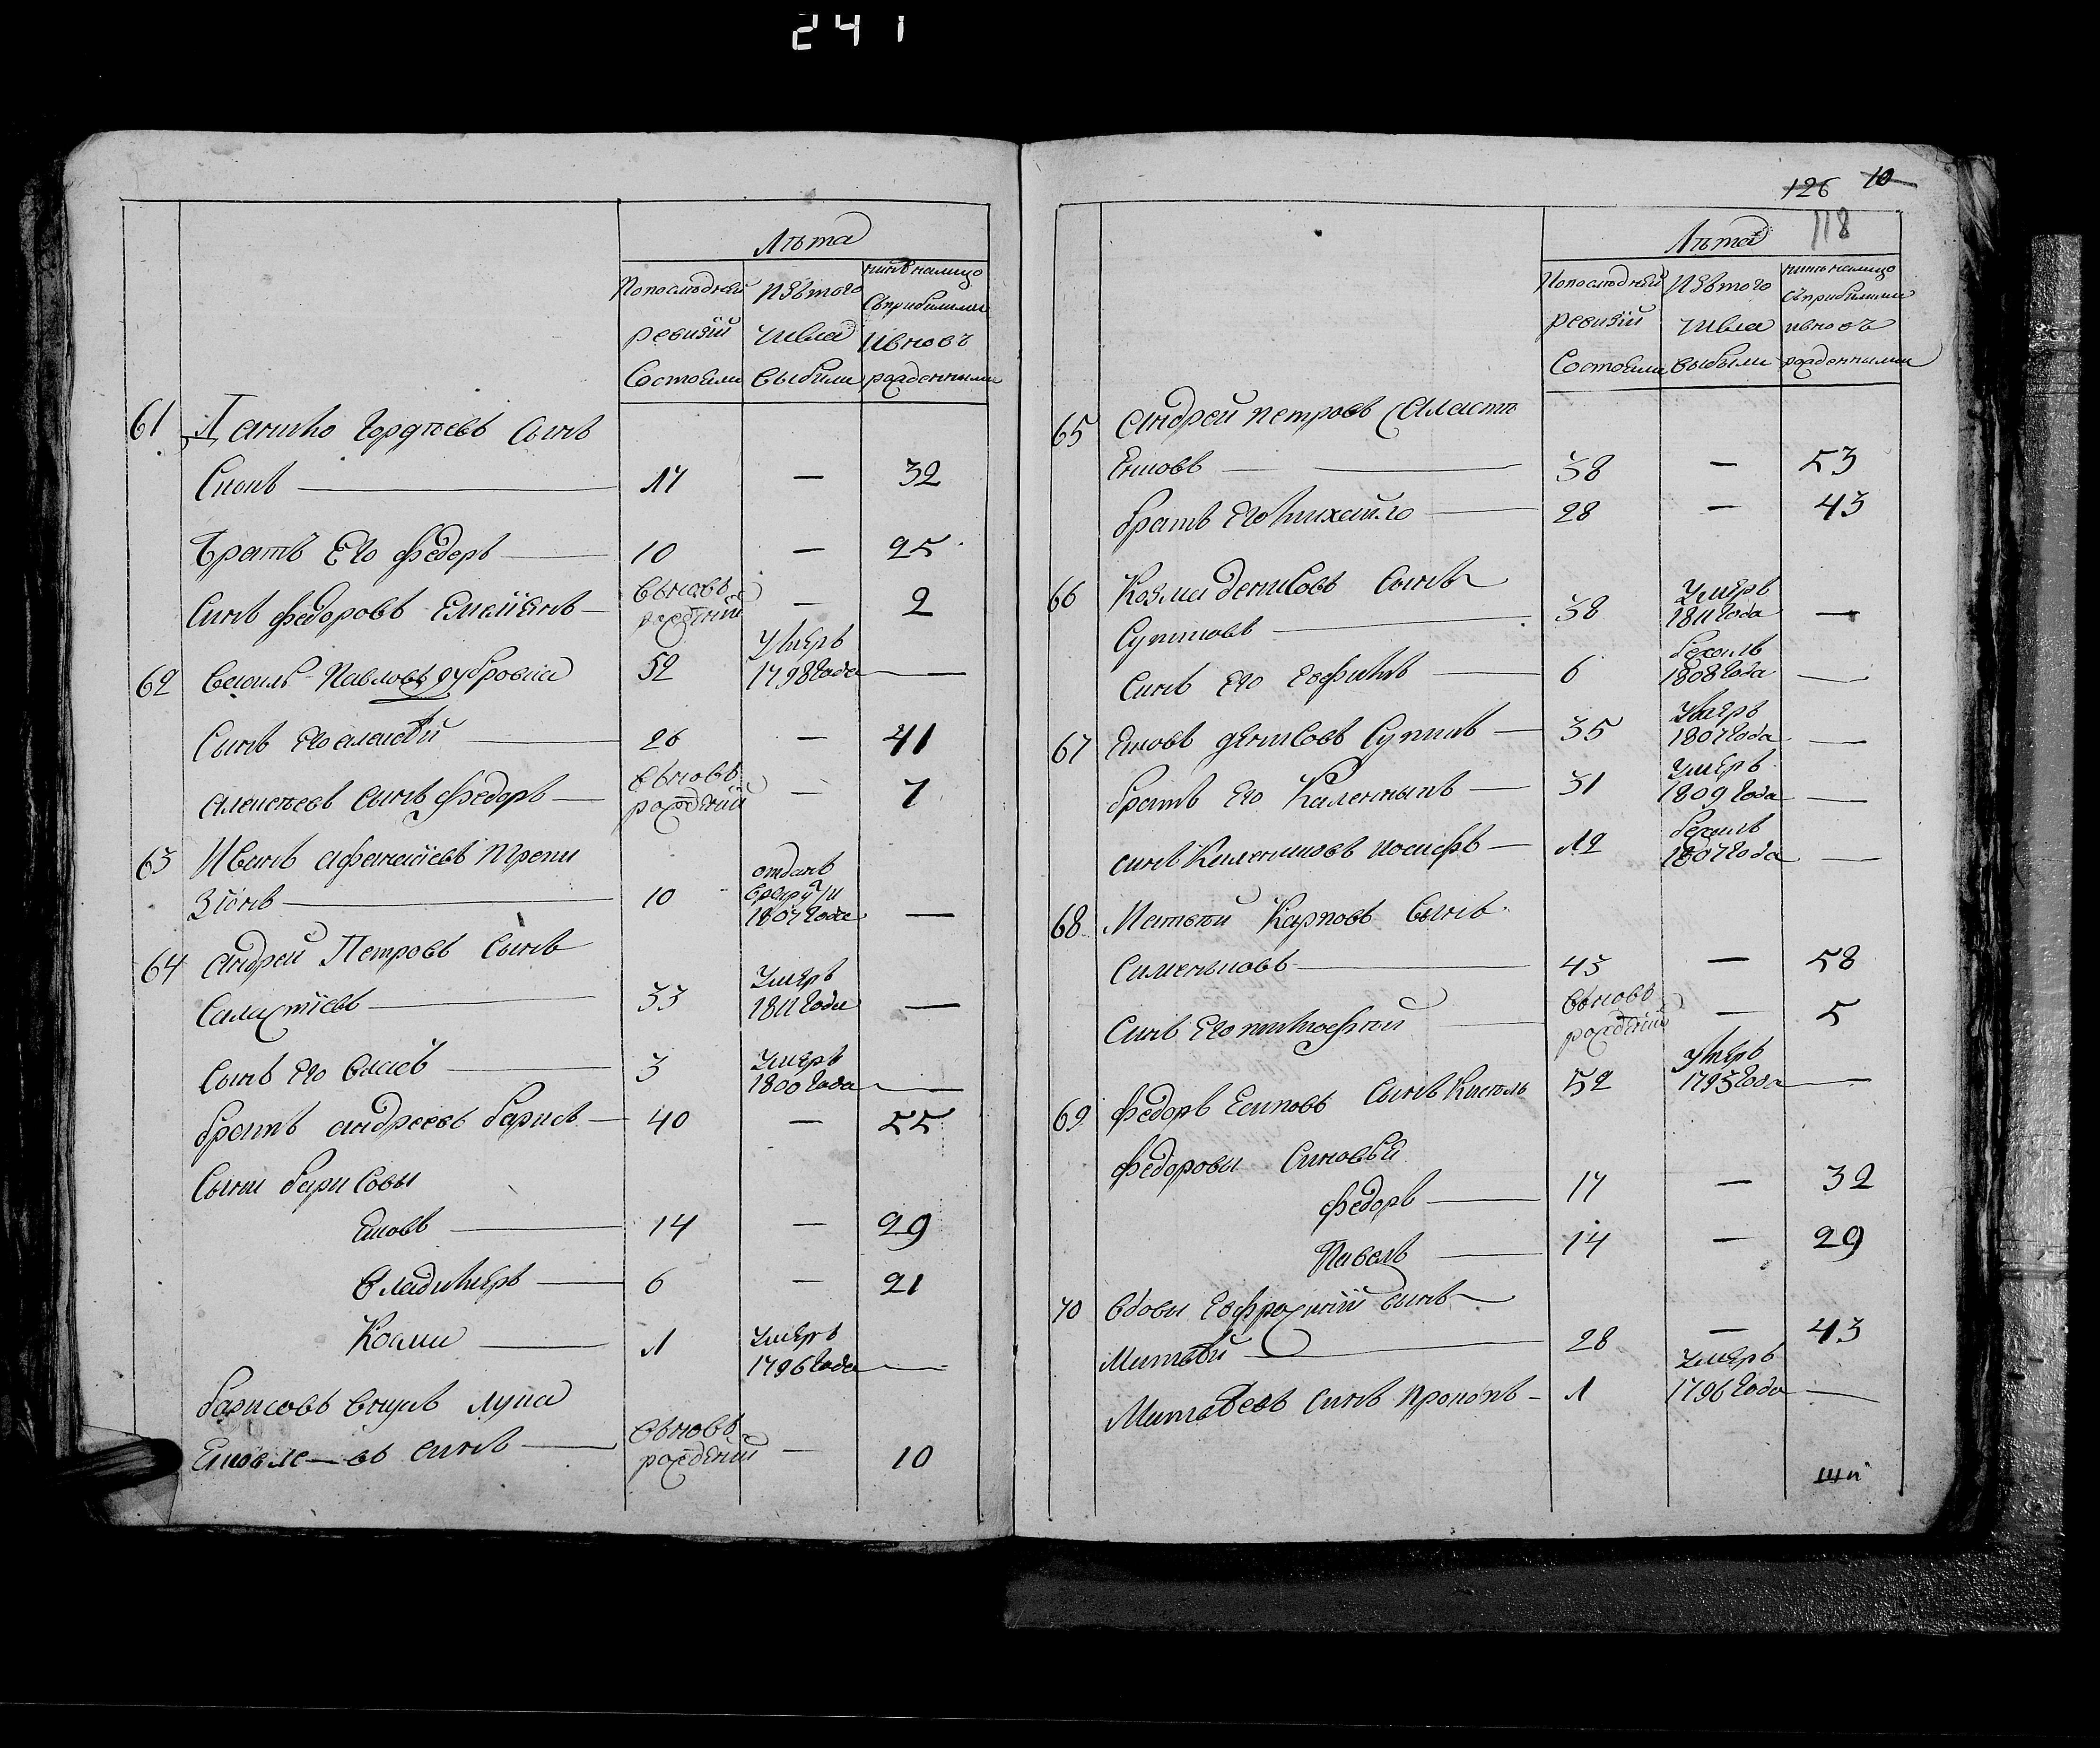 241
Лѣта
Попослѣдней ревизiи Состояли
Изътого числа выбыли
нынѣ налицо Съприбылыми ивновь рожденными
61 Данило Гордѣевъ Сынъ
17 — 32
Братъ Его Федоръ — 10 — 25
Сынъ Федоровъ Емелiянъ — вьновь рожденiй — 2
62 Василь Павловъ дубровка 52 Умеръ 1798 Года —
Сынъ Его алексѣй — 26 — 41
алексѣевъ Сынъ Федоръ — вьновь рожденiй — 7
63 Иванъ афанасiевъ
10 отданъ 1807 Года —
64 андрей Петровъ Сынъ
33 Умеръ 1811 Года —
Сынъ Его власъ — 3 Умеръ 1800 Года —
братъ андреевъ барисъ — 40 — 55
Сыны барисовы
Яковъ — 14 — 29
владимеръ — 6 — 21
Косма — 1 Умеръ 1796 Года —
барисовъ внукъ лука
Яковле—въ сынъ — вьновь рожденiй — 10
126 10
118
Лѣта
Попослѣдней ревизiи Состояли
Изътого числа выбыли
нынѣ налицо Съприбылыми ивновь рожденными
65 андрей петровъ
38 — 53
братъ Его михайло — 28 — 43
66 Козма денисовъ Сынъ
Супрновъ — 38 Умеръ 1811 Года —
Сынъ Его Ефимъ — 6 бежалъ 1808 Года —
67 Яковъ денисовъ — 35 Умеръ 1807 Года —
братъ Его Каленикъ — 31 Умеръ 1809 Года —
сынъ Калениковъ иосифъ — 12 бежалъ 1807 Года —
68 Матвѣй Карповъ Сынъ
Сименьковъ — 43 — 58
Сынъ Его тимофѣй — вьновь рожденiй — 5
69 Федоръ Есиповъ Сынъ Кисѣль 52 Умеръ 1795 Года —
Федоровы Сыновья
Федоръ — 17 — 32
Павелъ — 14 — 29
70 вдовы Ефросинiи сынъ
Матвѣй — 28 — 43
Матвѣевъ Сынъ Прокопъ — 1 Умеръ 1796 Года —